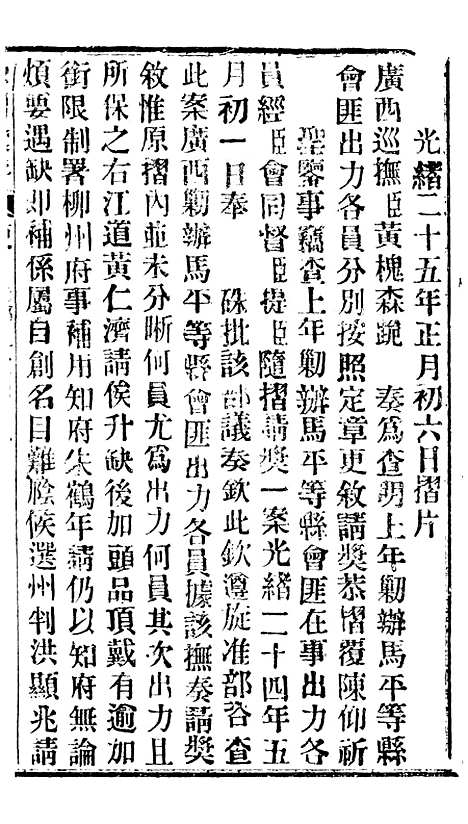 光緒二十五年正月初六日摺片
廣西巡撫臣黃槐森跪　奏爲查明上年剿辦馬平等縣
會匪出力各員分別按照定章更敘請獎恭摺覆陳仰祈
聖鑒事竊查上年剿辦馬平等縣會匪在事出力各
員經臣會同督臣提臣隨摺請獎一案光緒二十四年五
月初一日奉　硃批該部議奏欽此欽遵旋准部咨查
此案廣西剿辦馬平等縣會匪出力各員據該撫奏請獎
敘惟原摺內並未分晰何員尤爲出力何員其次出力且
所保之右江道黃仁濟請俟升缺後加頭品頂戴有逾加
銜限制署柳州府事補用知府朱鶴年請仍以知府無論
煩要遇缺卽補係屬自創名目難膾候選州判洪顯兆請